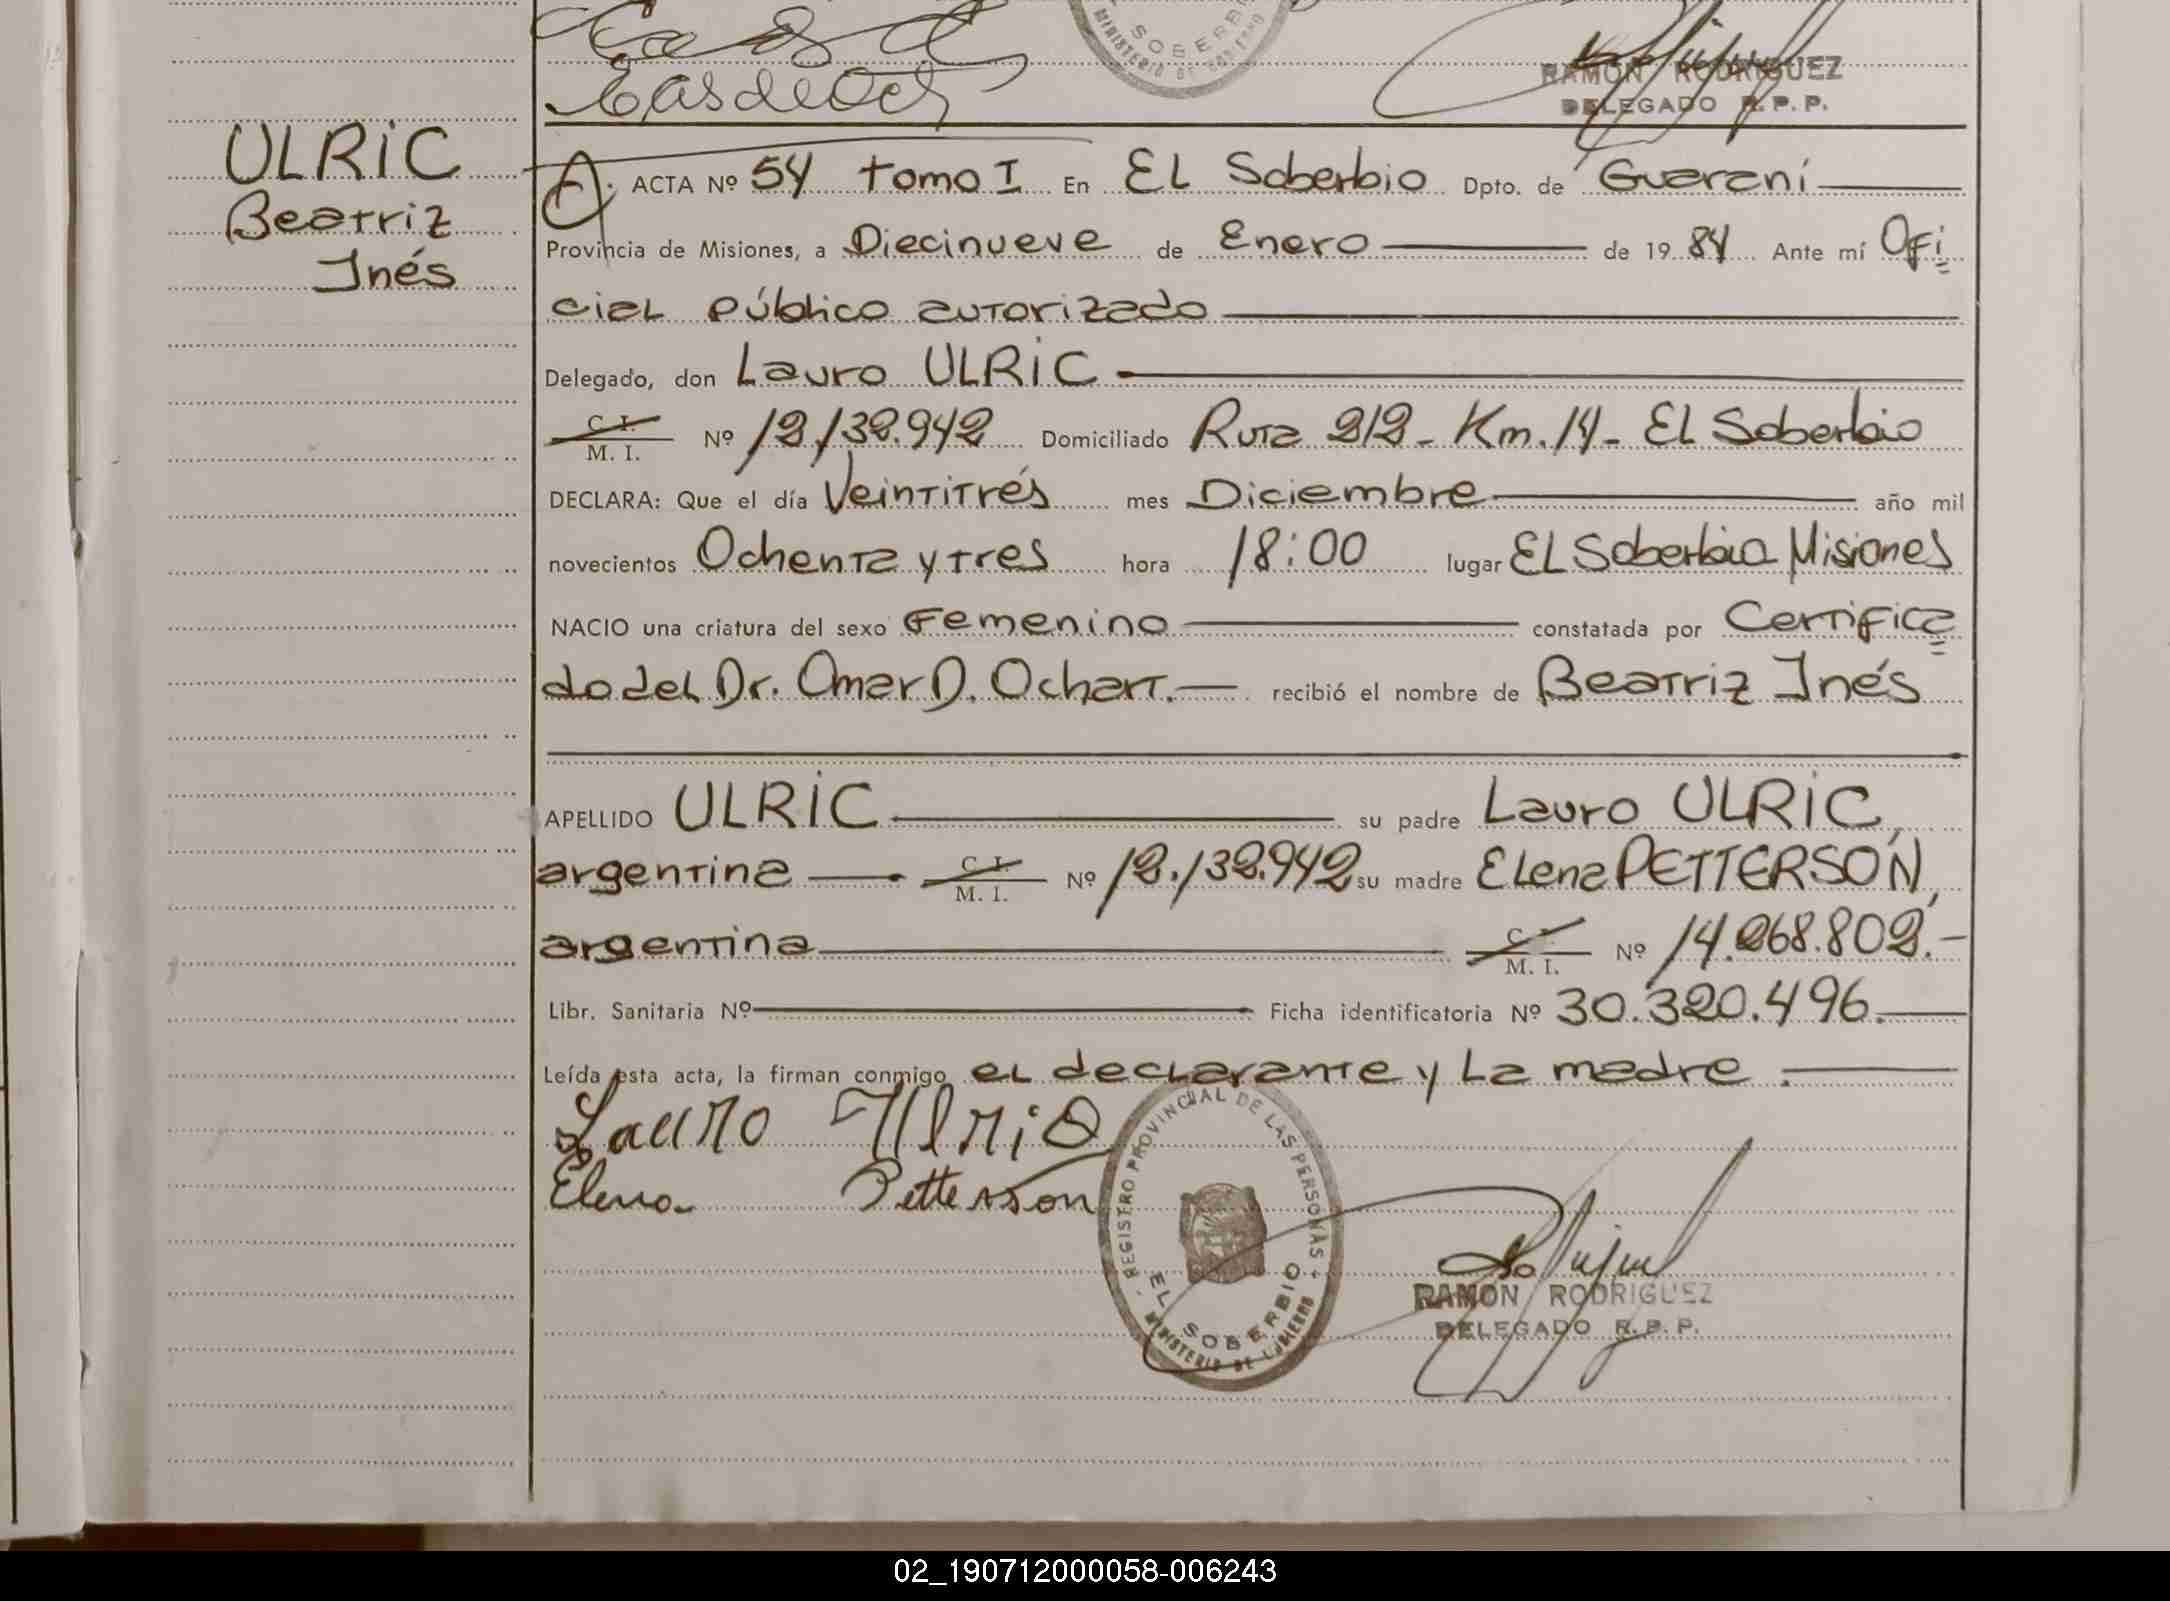 MINISTERIO DE GOBIERNO
SOBERBIO
RAMON RODRIGUEZ
DELEGADO R. P. P.
ULRIC
Beatriz
Inés
ACTA Nº 54 tomo I En EL Soberbio Dpto. de Guaraní
Provincia de Misiones, a Diecinueve de Enero de 1984 Ante mí Ofi
cial público autorizado
Delegado, don Lauro ULRIC
C. I.
M. I. Nº 12.132.942 Domiciliado Ruta 212 - Km. 14 - EL Soberbio
DECLARA: Que el día Veintitrés mes Diciembre año mil
novecientos Ochenta y tres hora 18:00 lugar EL Soberbio Misiones
NACIO una criatura del sexo Femenino constatada por Certifica
do del Dr. Omar D. Ochart. recibió el nombre de Beatriz Inés
APELLIDO ULRIC su padre Lauro ULRIC,
argentina C. I. M. I. Nº 12.132.942 su madre Elena PETTERSON,
argentina C. I. M. I. Nº 14.268.802.-
Libr. Sanitaria Nº Ficha identificatoria Nº 30.320.496.
Leída esta acta, la firman conmigo el declarante y La madre.
Lauro Ulric
Elena Petterson
REGISTRO PROVINCIAL DE LAS PERSONAS
EL SOBERBIO
MINISTERIO DE GOBIERNO
RAMON RODRIGUEZ
DELEGADO R. P. P.
02_190712000058-006243